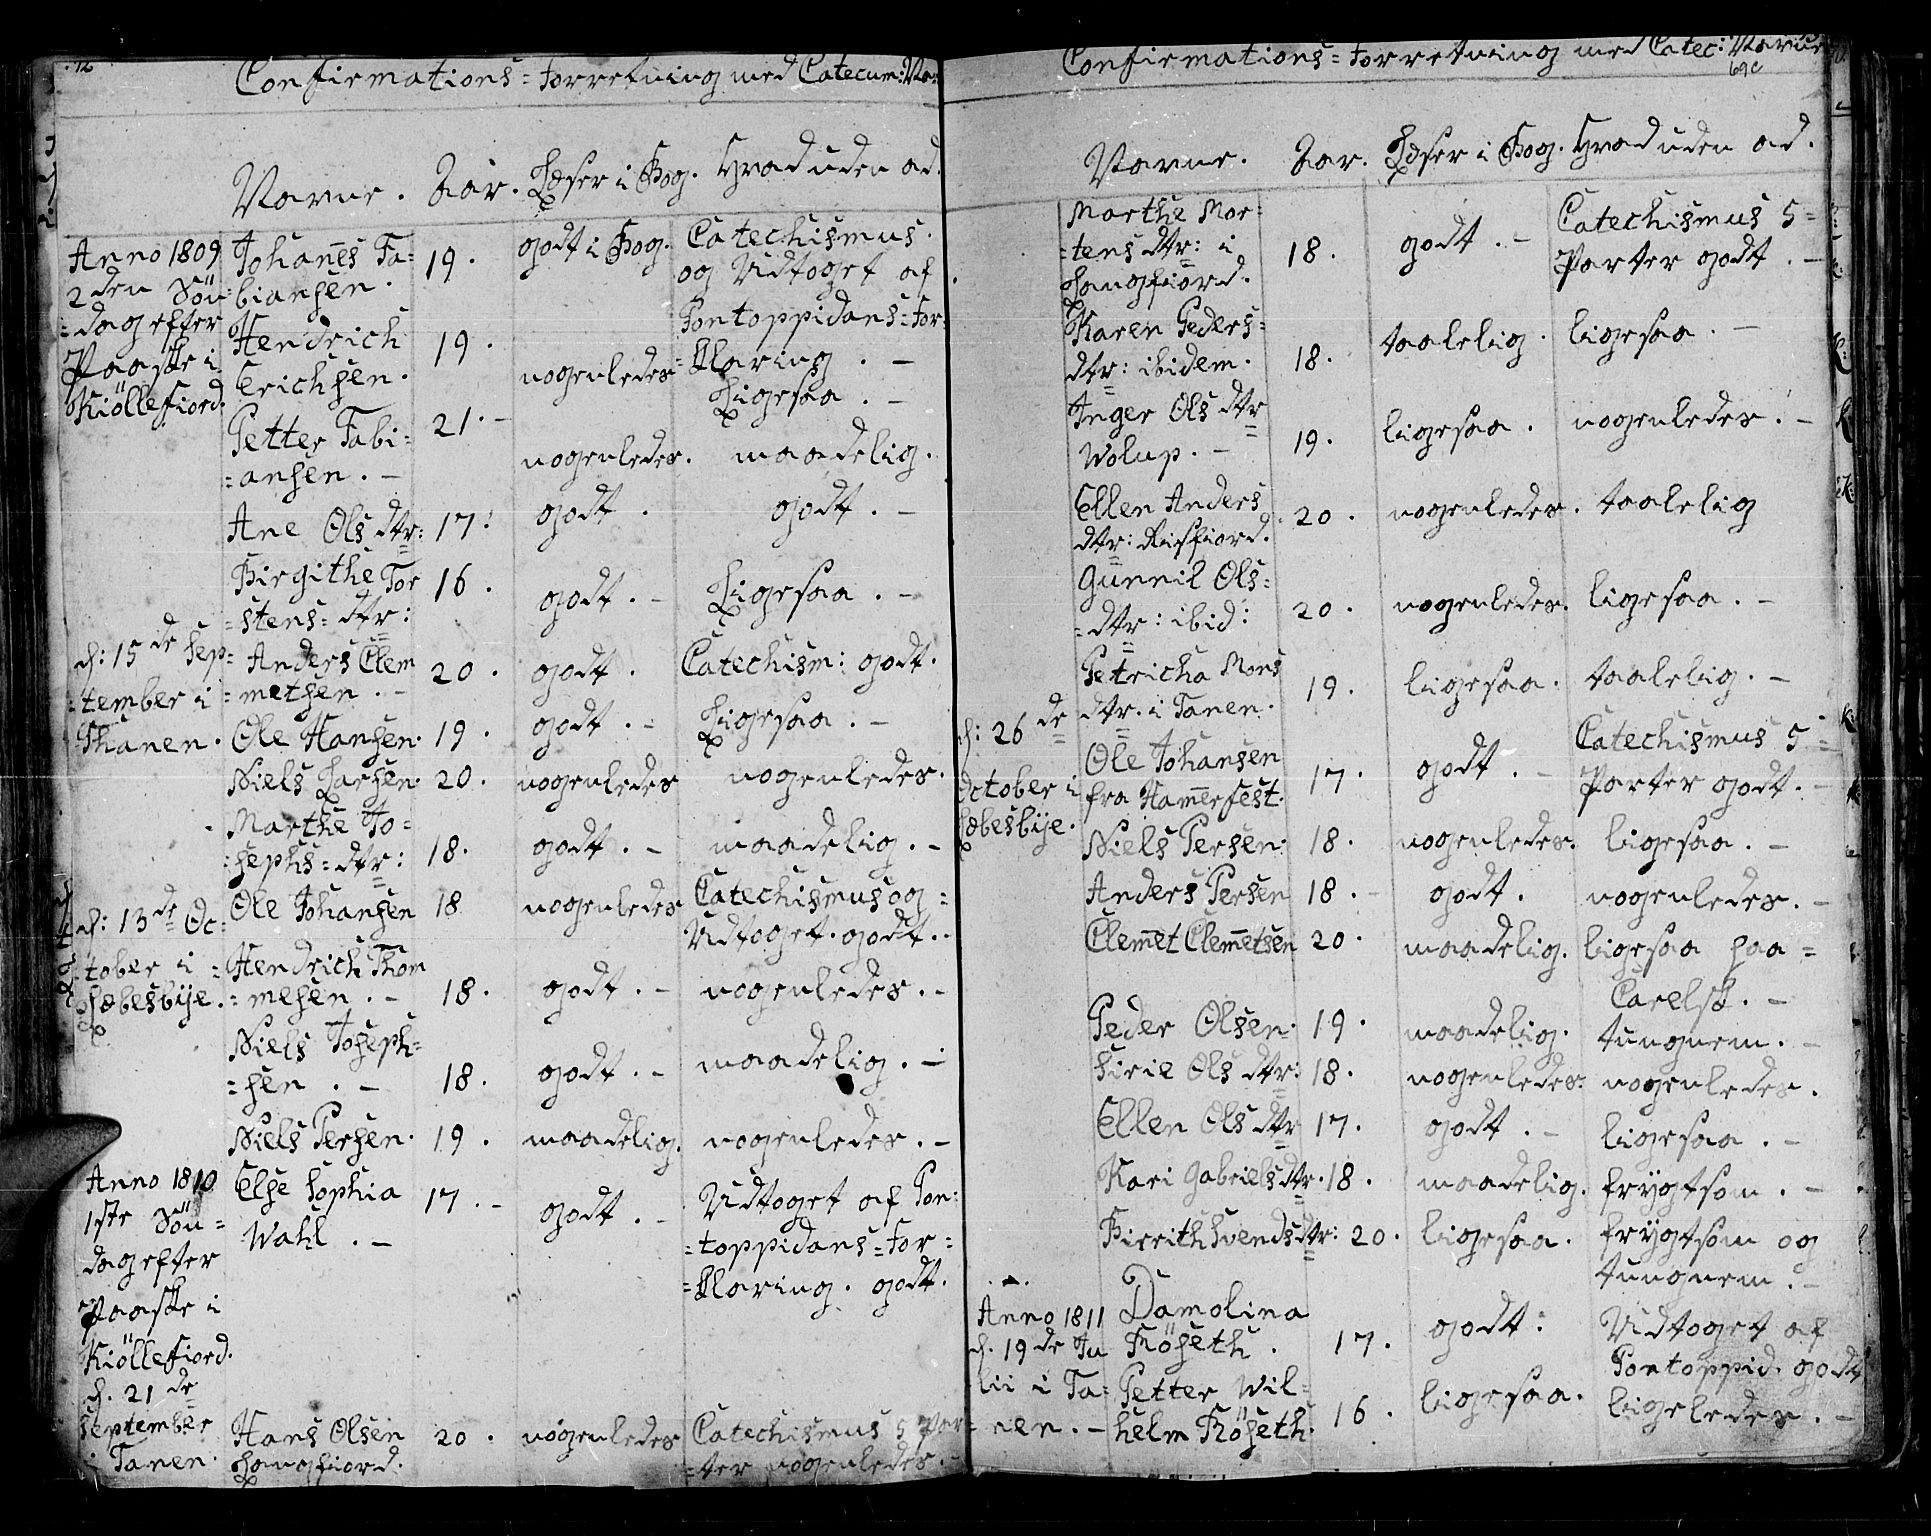 12
Confirmations=Forretning med Catecum:
Navne. Aar. Læser i Bog. Hvad uden ad.
Anno 1809
2den Sön
=dag efter
Paaske i
Kiöllefiord.
Johanes Fa=
biansen. 19. godt i Bog. Catechismus.
og Udtoget af
Pontoppidans=For=
=klaring. -
Hendrich
Erichsen. 19. nogenledes Ligesaa. -
Petter Fabi=
=ansen. - 21. - nogenledes. maadelig.
Ane Ols dtr: 17. godt. godt. -
Birgithe Tor
=stens=dtr: 16. godt. - Ligesaa. -
d: 15de Sep=
=tember i
Thanen.
Anders Clem
=metsen. - 20. godt. Catechism: godt.
Ole Hansen. 19. godt. - Ligesaa. -
Niels Larsen. 20. nogenledes nogenledes.
Marthe Jo=
=sephs=dtr: 18. godt. - maadelig. -
d: 13de Oc=
tober i
Læbesbÿe.
Ole Johansen 18 nogenledes Catechismus og=
Udtoget. godt. -
Hendrich Thom
=mesen. - 18. godt. - nogenledes. -
Niels Joseph=
=sen. - 18. godt. - maadelig. -
Niels Persen. 19. maadelig. nogenledes. -
Anno 1810
1ste Sön=
dag efter
Paaske i
Kiöllefiord.
Else Sophia
Wahl. - 17. - godt. - Udtoget af Pon:
=toppidans=For=
=klaring. godt.
d. 21de
September
i Tanen.
Hans Olsen
Langfiord. 20. nogenledes Catechismus 5 Par=
=ter nogenledes. -
Confirmations=Forretning med Catec: Navne
69c
Navne. Aar. Læser i Bog. Hvad uden ad.
Marthe Mor=
=tens dtr: i
Langfiord. 18. godt. - Catechismus 5=
Parter godt. -
Karen Peders=
dtr: ibidem. 18. taalelig. ligesaa. -
Inger Ols dtr
Wolup. - 19. ligesaa. nogenledes. -
Ellen Anders
dtr: Risfiord. 20. nogenledes. taalelig
Gunnil Ols=
=dtr: ibid: 20. nogenledes. ligesaa. -
Petricha Mons
dtr. i Tanen. 19. ligesaa. taalelig. -
d: 26de
October i
Læbesbÿe.
Ole Johansen
fra Hamerfest. 17. godt. - Catechismus 5=
Parter godt. -
Niels Persen. 18. nogenledes. ligesaa. -
Anders Persen 18. - godt. nogenledes. -
Clemet Clemetsen 20. maadelig. ligesaa paa=
Carelsk. -
Peder Olsen. 19. maadelig. tungnem. -
Sirie Ols dtr: 18. nogenledes: nogenledes.
Ellen Ols dtr 17. godt. - ligesaa. -
Kari Gabriels dtr. 18. maadelig. frÿgtsom. -
Birrith Svends dtr: 20. ligesaa. frÿgtsom og
tungnem. -
Anno 1811
d. 19de Ju
lii i Ta=
nen. -
Damolina
Röseth. 17. godt: Udtoget af
Pontoppid. godt
Petter Wil=
helm Röseth. 16. ligesaa. ligeledes. -